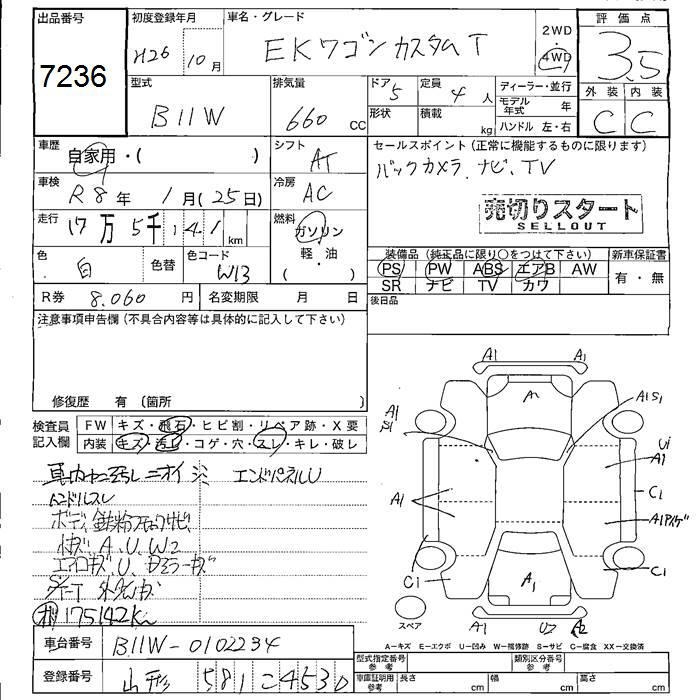 出品番号
7236
初度登録年月
H26 10月
車名・グレード
EKワゴン カスタム T
2WD
4WD
評価点
3.5
外装 内装
C C
型式
B11W
排気量
660 cc
ドア 5
形状
定員 4人
積載 kg
ディーラー・並行
モデル年式 年
ハンドル 左・右
車歴
自家用・( )
シフト
AT
セールスポイント(正常に機能するものに限ります)
バックカメラ、ナビ、TV
売切りスタート
SELLOUT
車検
R8年 1月(25日)
冷房
AC
走行
17万5千141km
燃料
ガソリン
軽・油
( )
色
白
色替
色コード
W13
装備品(純正品に限り○をつけて下さい)
PS PW ABS エアB AW
SR ナビ TV カワ
新車保証書
有・無
R券 8.060円
名変期限 月 日
後日品
注意事項申告欄(不具合内容等は具体的に記入して下さい)
修復歴 有(箇所 )
検査員
記入欄
FW キズ・飛石・ヒビ割・リペア跡・X要
内装 キズ・汚れ・コゲ・穴・スレ・キレ・破レ
エンドパネルU
ハンドルスレ
A、U、W2
175142km
A1 A1
A
A1S1
A1
U1
A1
A1
C1
C1
C1
A1
A1 U2 A2
スペア
A－キズ E－エクボ U－凹み W－補修跡 S－サビ C－腐食 XX－交換済
車台番号
B11W-0102234
登録番号
山形 581 こ 4530
型式指定番号
参考
類別区分番号
参考
車庫証明用
参考
長さ cm
幅 cm
高さ cm